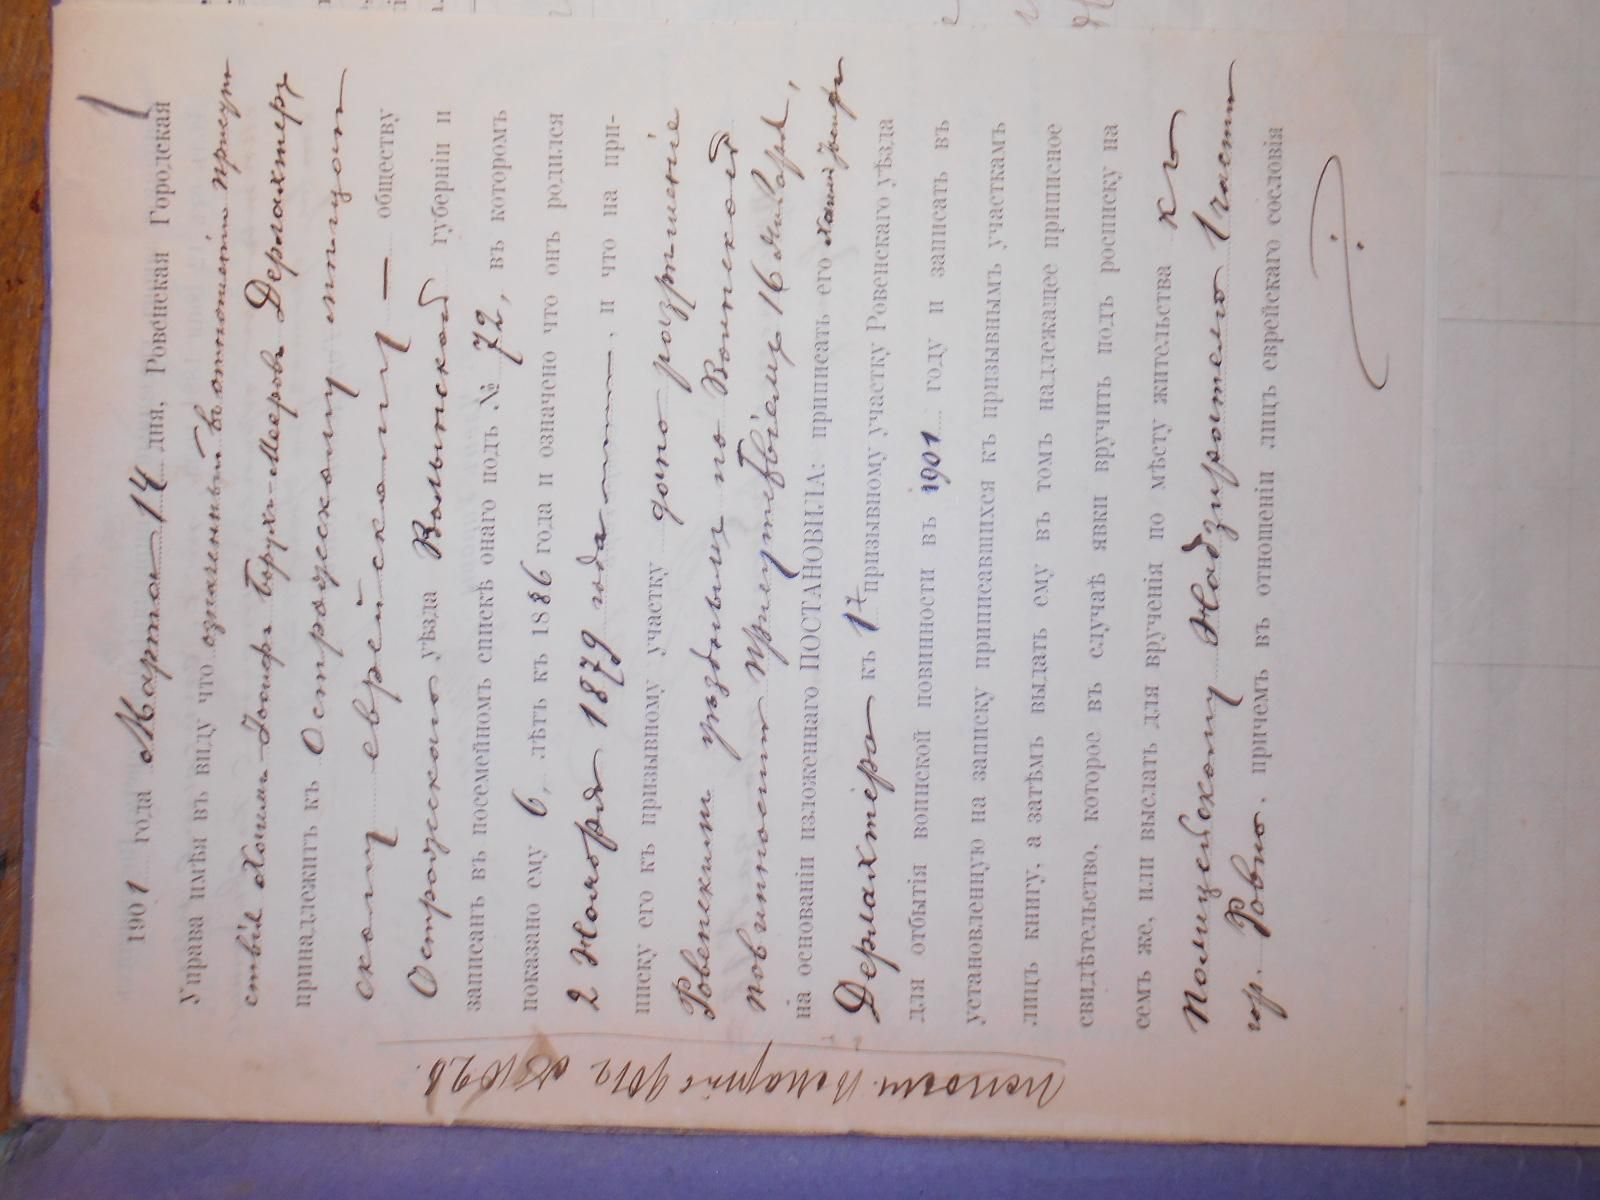 1901 года Марта 14 дня, Ровенская Городская
Управа имѣя въ виду что означенный въ отношеніи присут
ствія Хаимъ-Іосифъ Борухъ-Мееровъ Дерлахтеръ
принадлежитъ къ Острожскому мѣщан
скому еврейскому — обществу
Острожскаго уѣзда Волынской губерніи и
записанъ въ посемейномъ спискѣ онаго подъ № 72, въ которомъ
показано ему 6, лѣтъ къ 1886 года и означено что онъ родился
2 Ноября 1879 года, и что на при-
писку его къ призывному участку дано разрѣшеніе
Ровенскимъ уѣзднымъ по Воинской
повинности Присутствіемъ 16 Января,
на основаніи изложеннаго ПОСТАНОВИЛА: приписать его Хаима Іосифа
Дерлахтера къ 1 призывному участку Ровенскаго уѣзда
для отбытія воинской повинности въ 1901 году и записать въ
установленную на записку приписавшихся къ призывнымъ участкамъ
лицъ книгу, а затѣмъ выдать ему въ томъ надлежащее приписное
свидѣтельство, которое въ случаѣ явки вручить подъ росписку на
семъ же, или выслать для врученія по мѣсту жительства къ
Полицейскому Надзирателю 1 части
гор. Ровно, причемъ въ отношеніи лицъ еврейскаго сословія
марта 1901 №